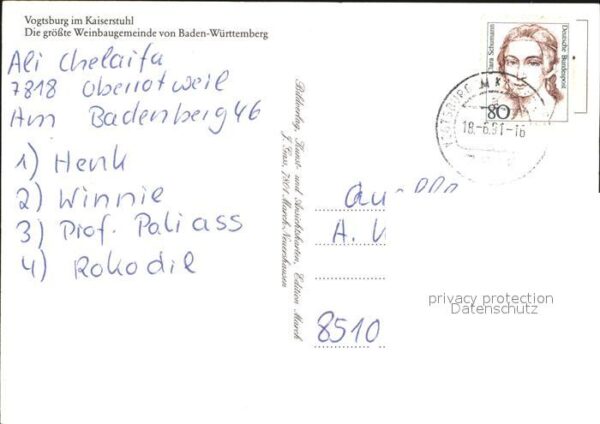 Vogtsburg im Kaiserstuhl
Die größte Weinbaugemeinde von Baden-Württemberg
Ali Chelaifa
7818 Oberrotweil
Am Badenberg 46
1) Henk
2) Winnie
3) Prof. Paliass
4) Rokodil
Bildverlag, Kunst- und Ansichtskarten, Edition March
J. Gass, 7801 March-Neuershausen
Clara Schumann
Deutsche Bundespost
80
VOGTSBURG
18.-6.91-16
A.
8510
privacy protection
Datenschutz